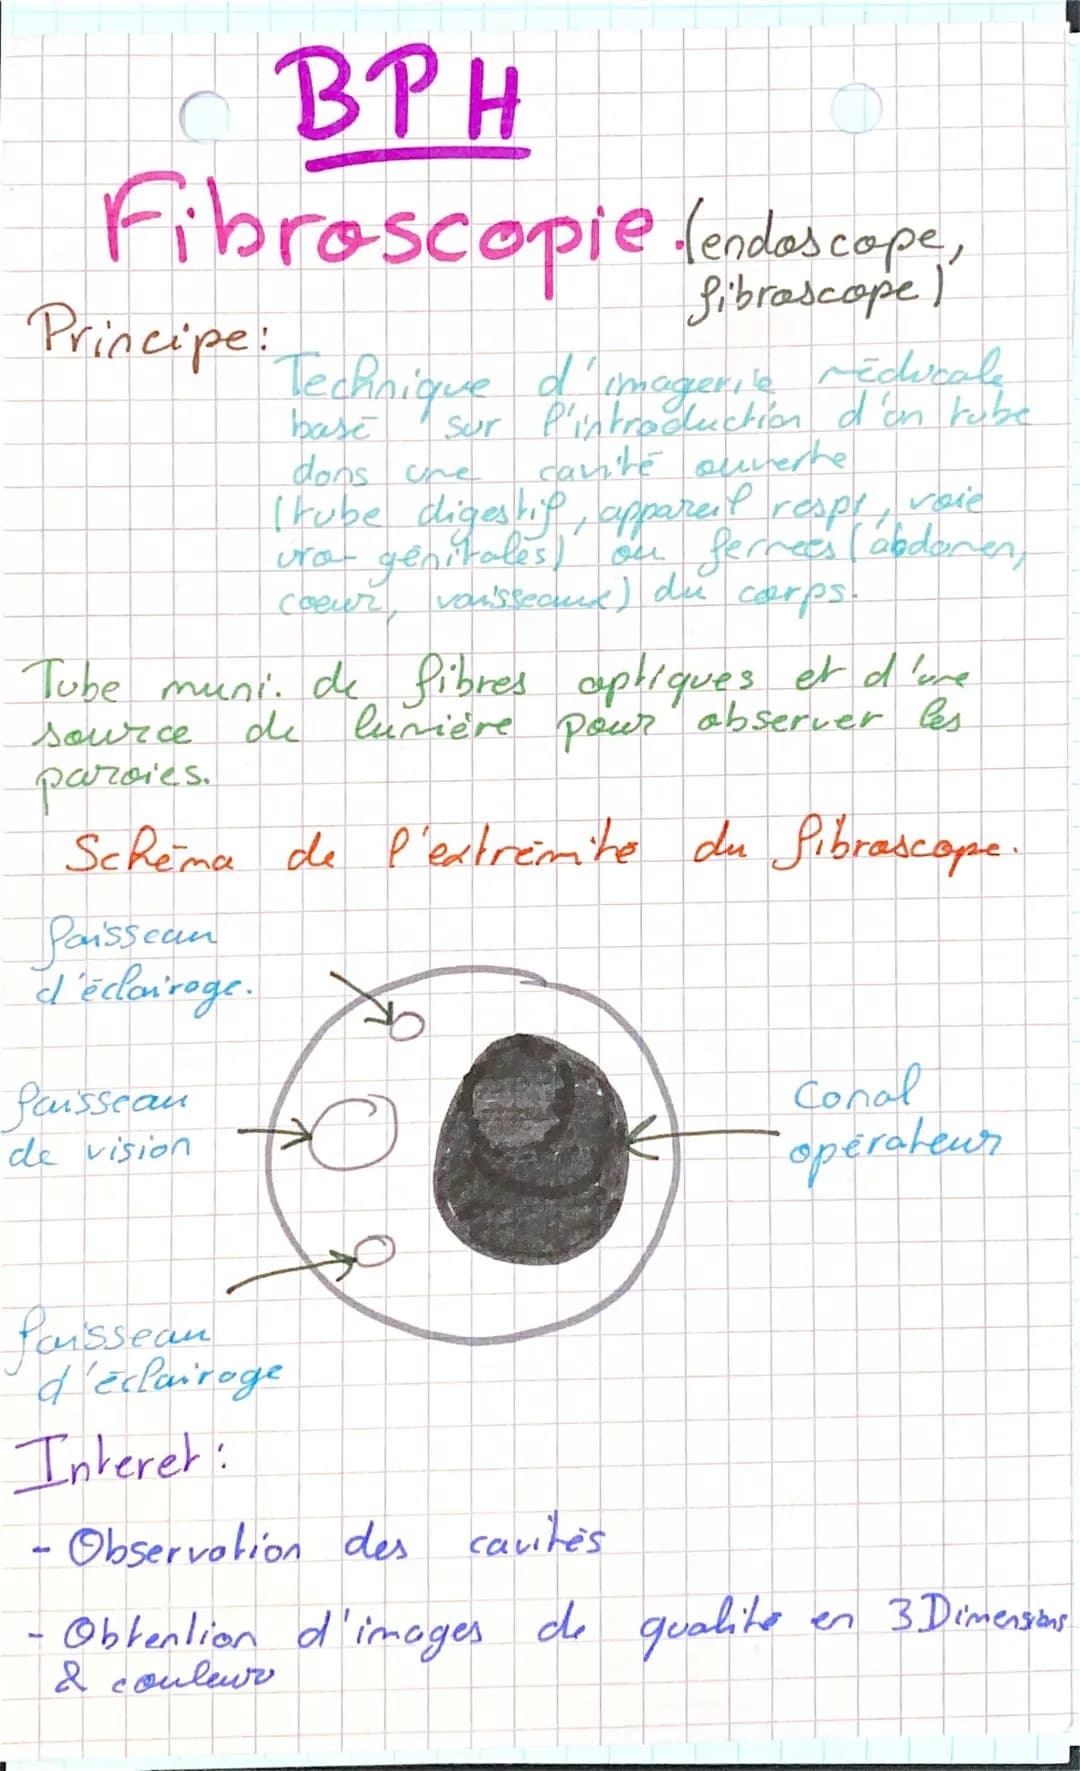 BPH
Fibroscopie. (endoscope,
fibroscope)
Principe:
Technique d'imagerie médicale
basé sur l'introduction d'un tube
dans une cavité ouverte
(tube digestif, appareil respi, voie
uro-génitales) ou fermées (abdomen,
coeur, vaisseaux) du corps.
Tube muni. de fibres optiques et d'une
source de lumière pour observer les
paroies.
Schéma de l'extrémité du fibroscope.
faisseau
d'éclairage.
faisseau
de vision
Canal
opérateur
faisseau
d'éclairage
Interet:
- Observation des cavités
- Obtention d'images de qualité en 3Dimensions
& couleur